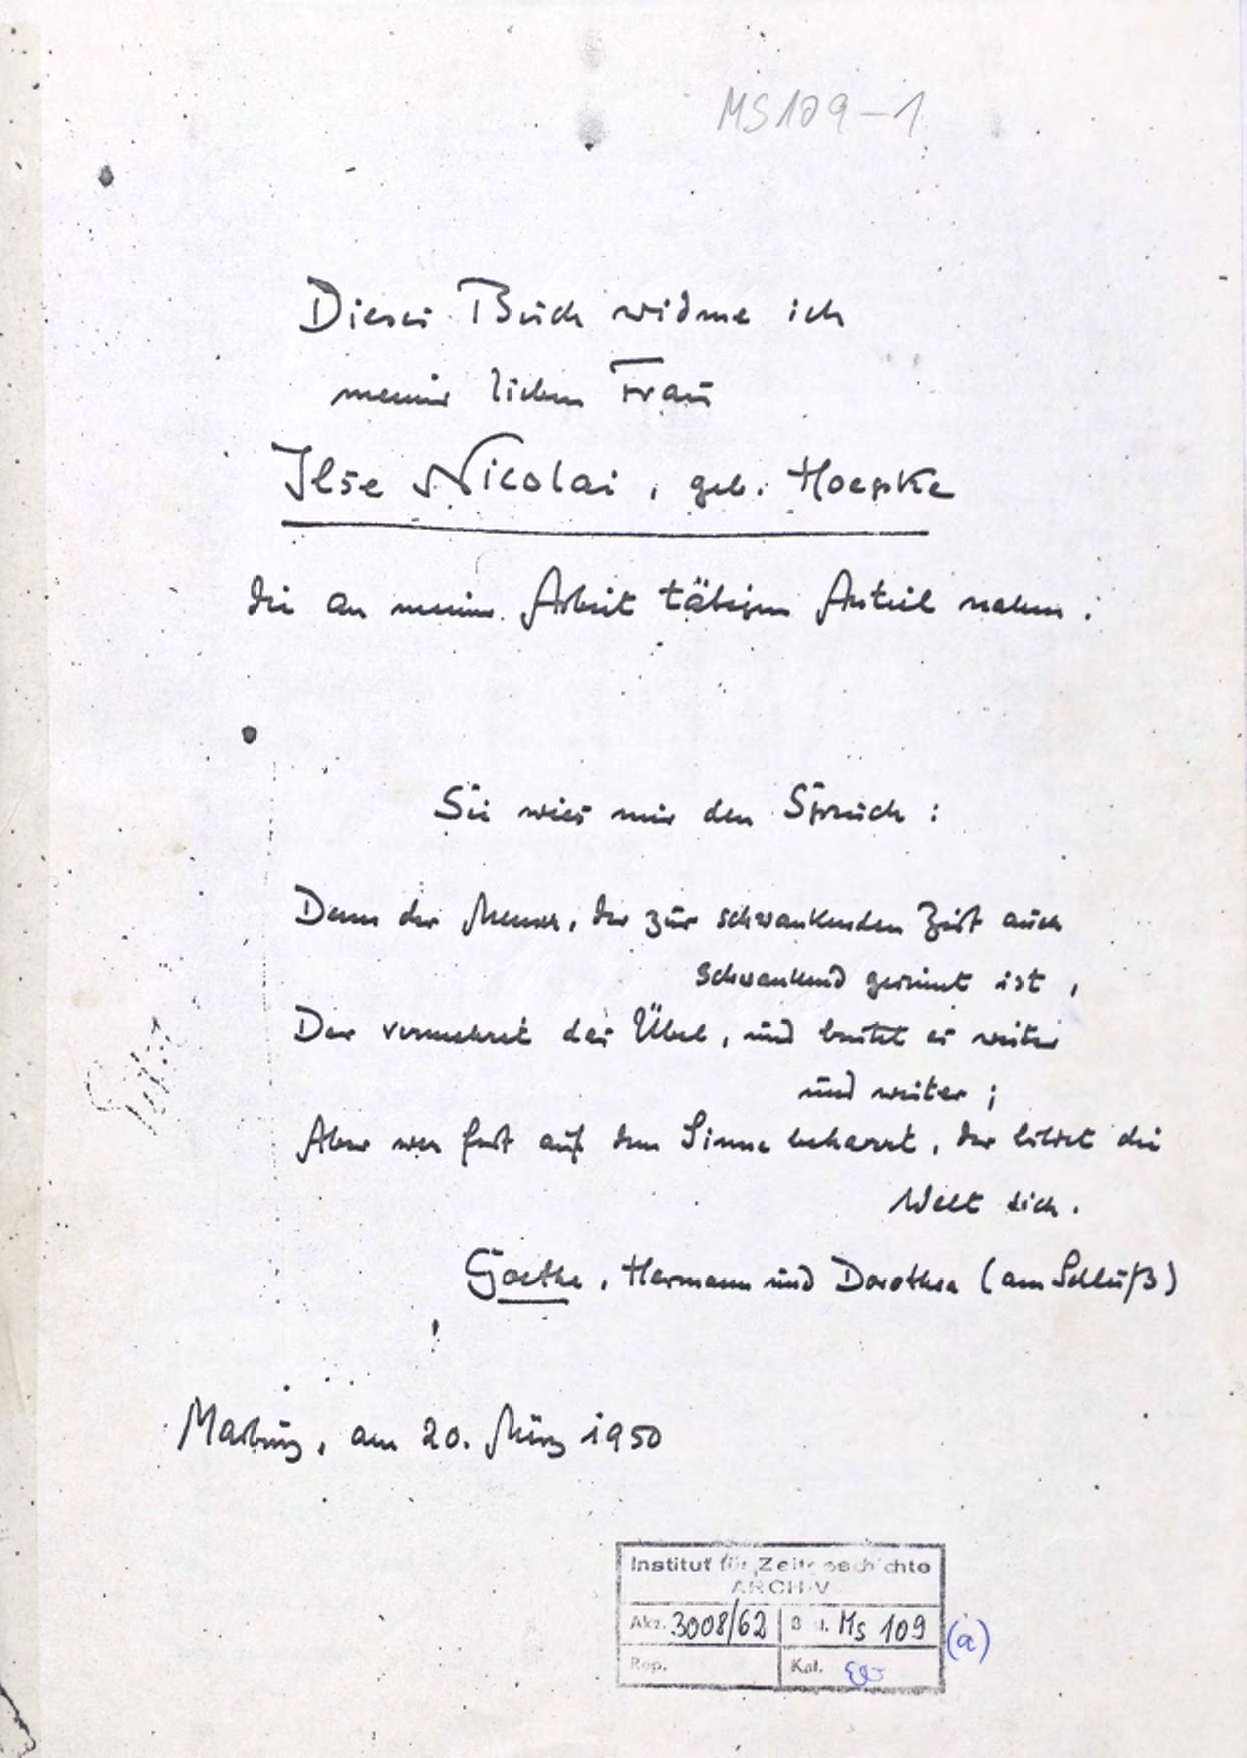 MS109-1
Dieses Buch widme ich
meiner lieben Frau
Ilse Nicolai, geb. Hoepke
die an meiner Arbeit tätigen Anteil nahm.
Sie wies mir den Spruch:
Denn der Mensch, der zur schwankenden Zeit auch
schwankend gesinnt ist,
Der vermehret das Übel, und breitet es weiter
und weiter;
Aber wer fest auf dem Sinne beharrt, der bildet die
Welt sich.
Goethe, Hermann und Dorothea (am Schluß)
Marburg, am 20. März 1950
Institut für Zeitgeschichte
ARCHIV
Akz. 3008/62 Ms 109 (a)
Rep. Kat.